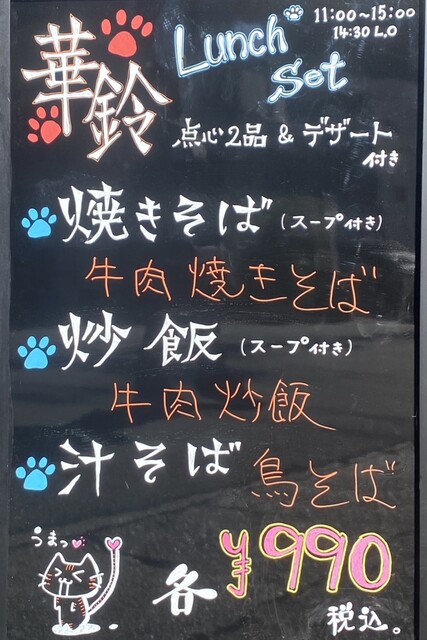 華鈴
Lunch Set
11:00~15:00
14:30 L.O
点心2品 & デザート
付き
焼きそば (スープ付き)
牛肉焼きそば
炒飯 (スープ付き)
牛肉炒飯
汁そば 鳥そば
うまっ
各 ¥990
税込。